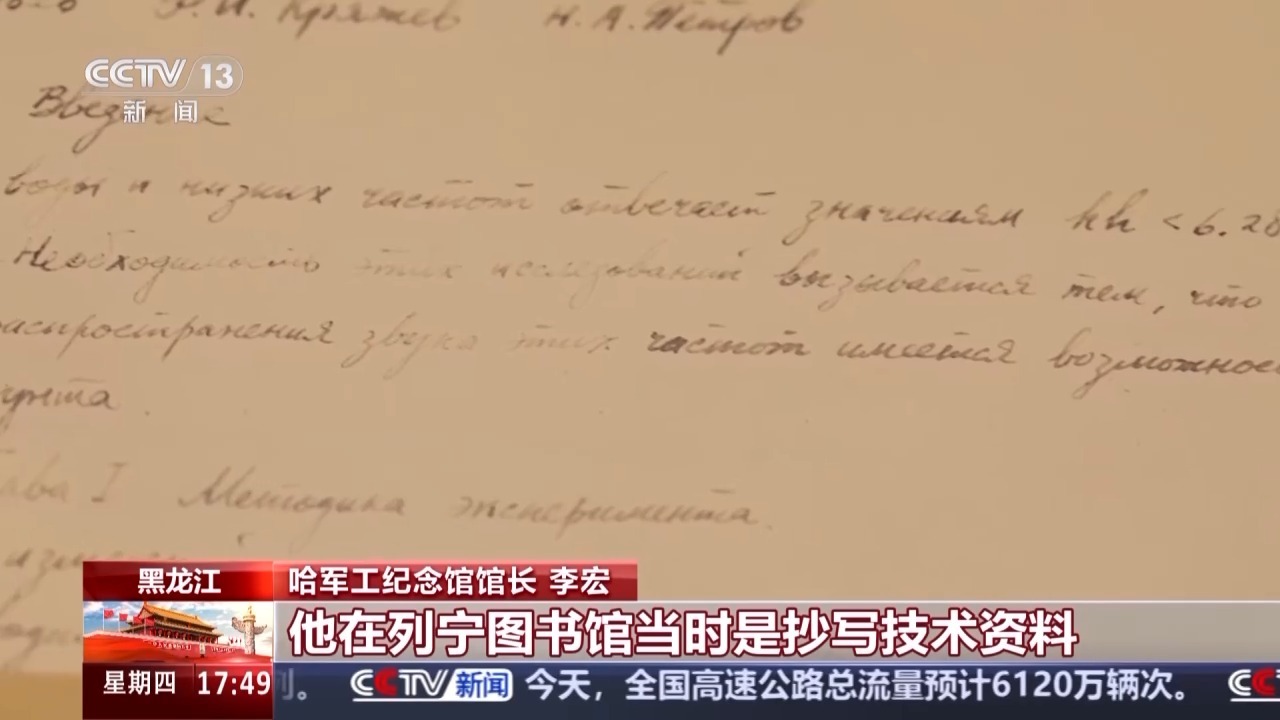 Р.И. Кряжев Н.А. Петров
CCTV 13
新闻
Введение
воды и низких частот отвечает значениям kh < 6.28
Необходимость этих исследований вызывается тем, что
распространения звука этих частот имеется возможнос
грунта.
Глава I Методика эксперимента.
黑龙江
哈军工纪念馆馆长 李宏
他在列宁图书馆当时是抄写技术资料
星期四 17:49
列。 CCTV 新闻 今天，全国高速公路总流量预计6120万辆次。 CCT